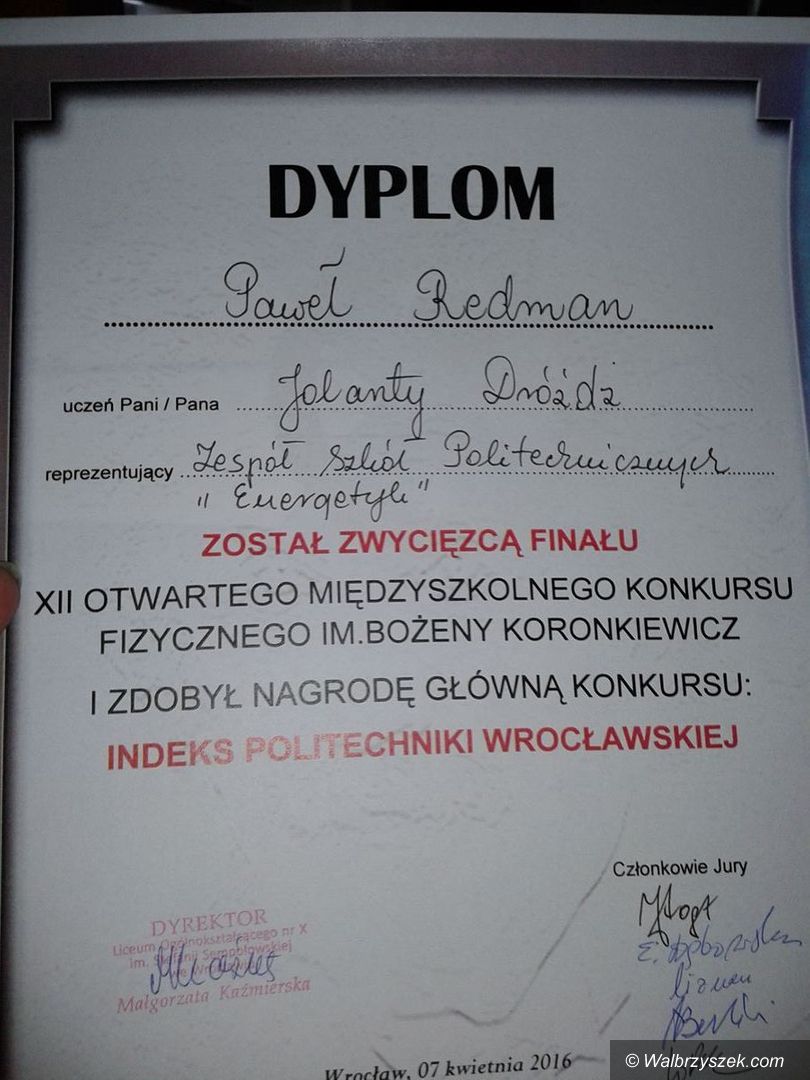 DYPLOM
Paweł Redman
uczeń Pani / Pana Jolanty Dróżdż
reprezentujący Zespół Szkół Politechnicznych
"Energetyk"
ZOSTAŁ ZWYCIĘZCĄ FINAŁU
XII OTWARTEGO MIĘDZYSZKOLNEGO KONKURSU
FIZYCZNEGO IM.BOŻENY KORONKIEWICZ
I ZDOBYŁ NAGRODĘ GŁÓWNĄ KONKURSU:
INDEKS POLITECHNIKI WROCŁAWSKIEJ
Członkowie Jury
DYREKTOR
Liceum Ogólnokształcącego nr X
im. Stefanii Sempołowskiej
we Wrocławiu
Małgorzata Kaźmierska
Wrocław, 07 kwietnia 2016
© Walbrzyszek.com